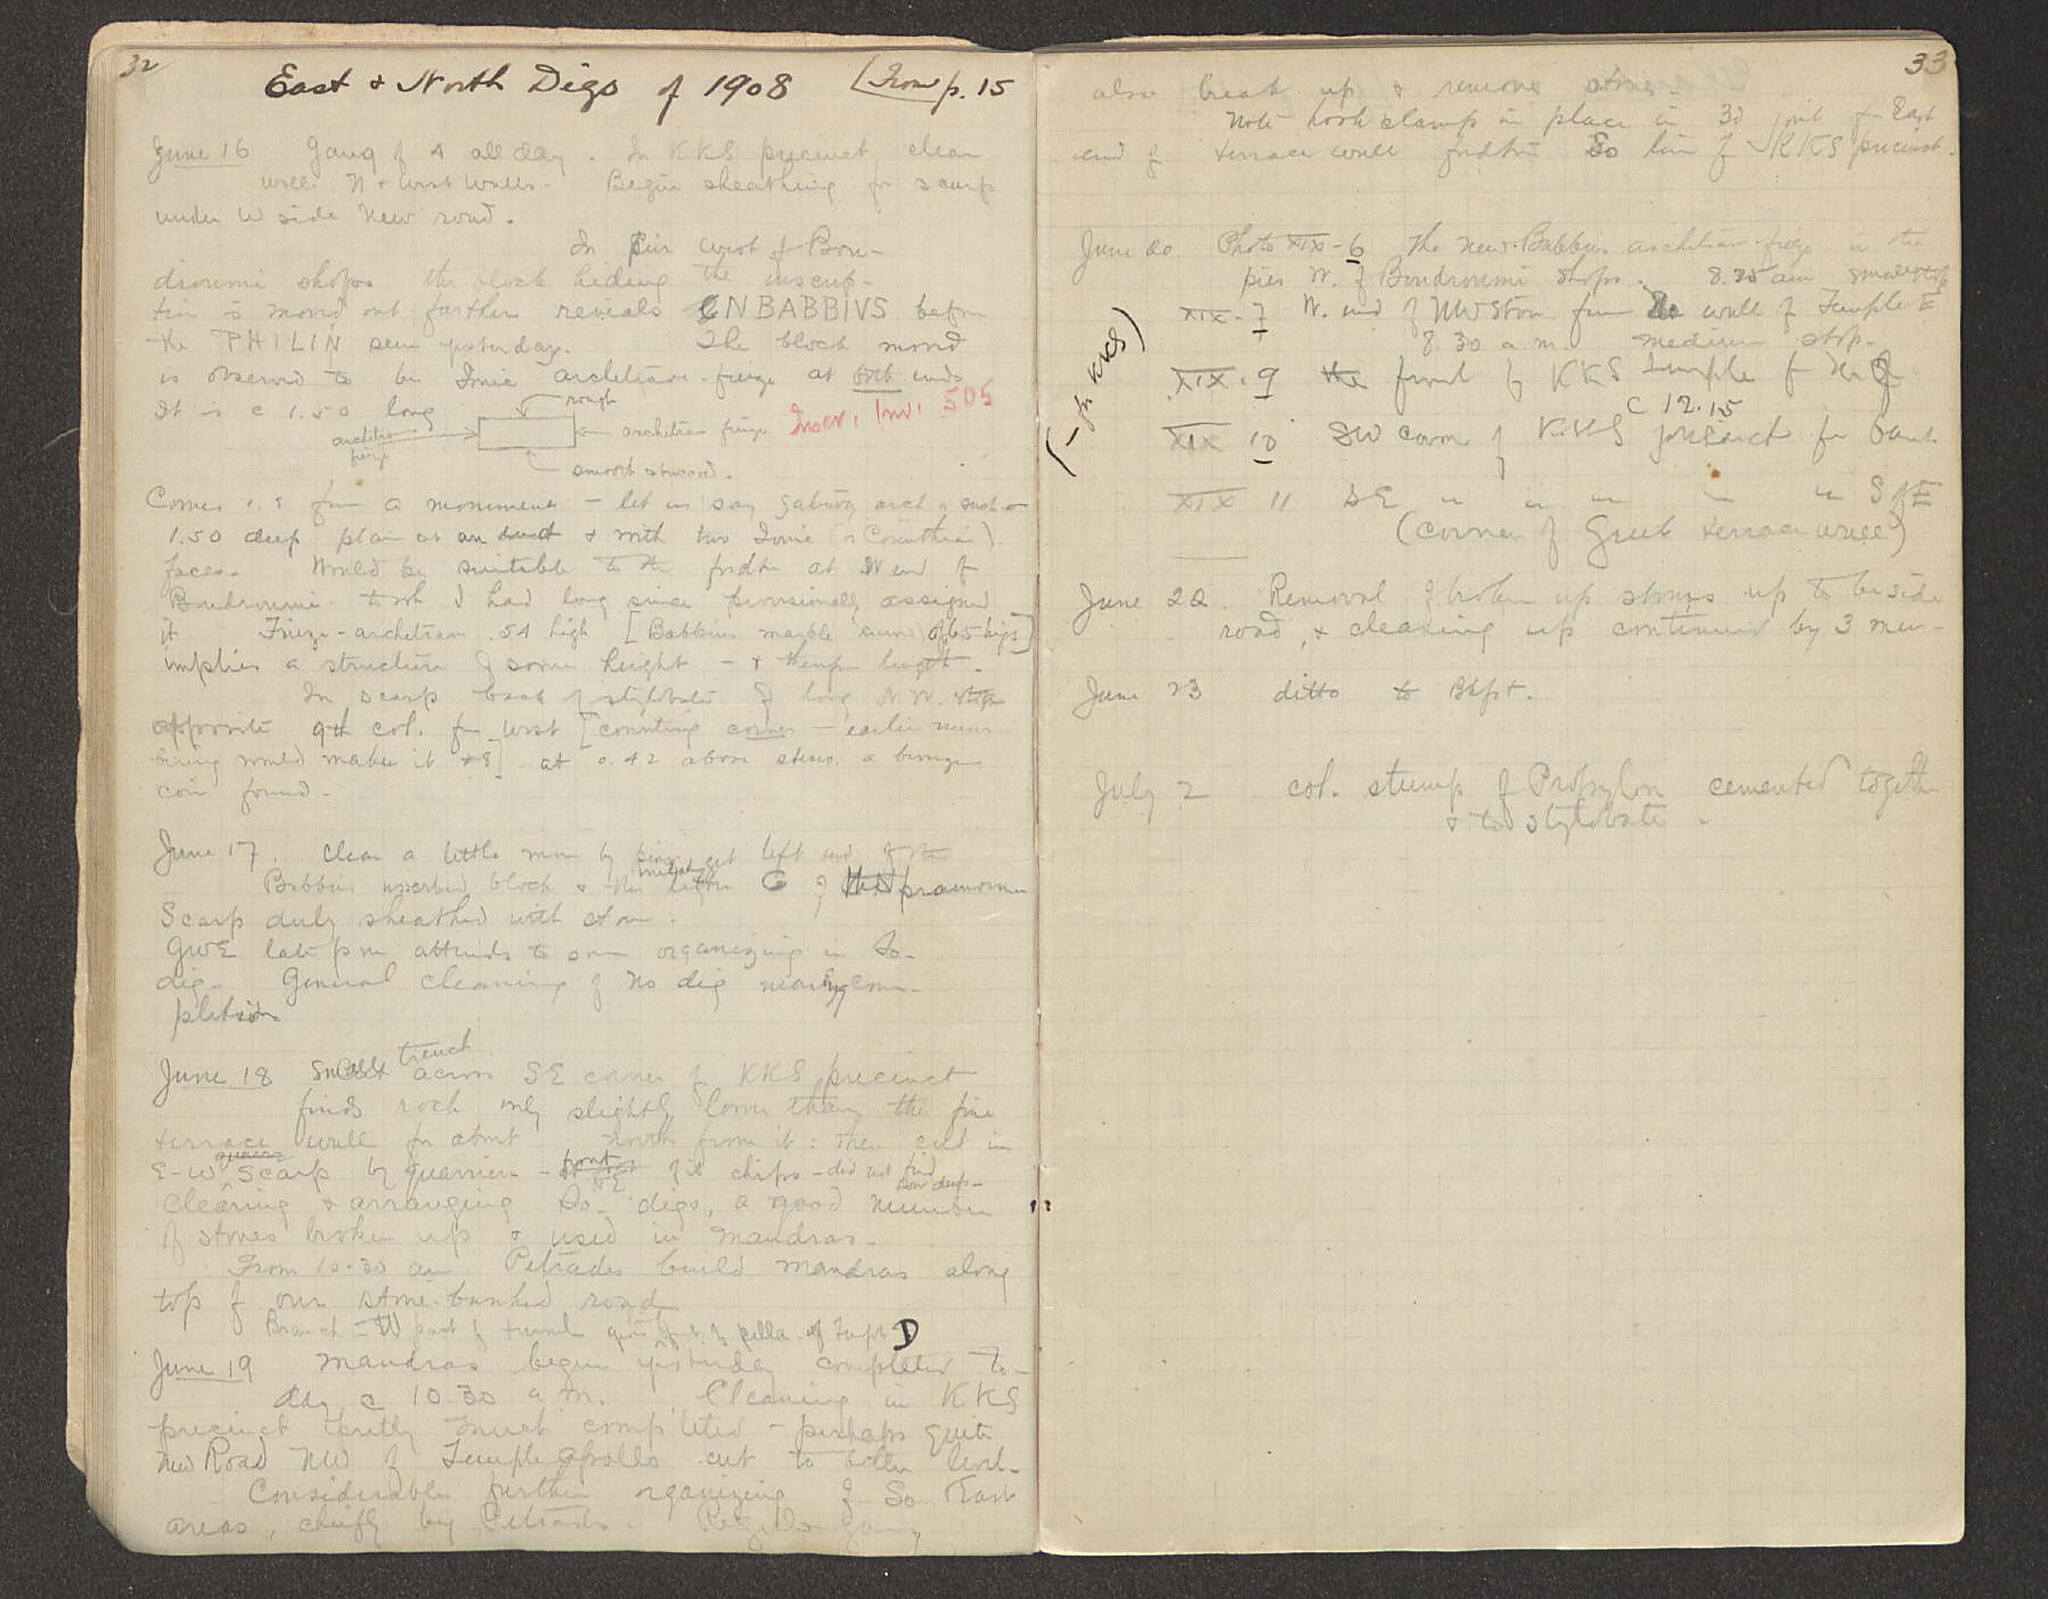 32
East & North Digs of 1908 (From p. 15
June 16 Gang of 4 all day. In KKS precinct clean
well N & West walls. Begin sheathing for scarp
under W side New road.
In Pier west of Bou-
droumi shops the block hiding the inscrip-
tion is moved out further reveals CN BABBIVS before
the PHILIN seen yesterday. The block moved
is observed to be Ionic architrave-frieze at both ends
It is c 1.50 long
rough
architrave frieze
architrave frieze
Inscr. Inv. 505
smooth stuccoed.
Comes i.e from a monument – let us say gateway arch or such –
1.50 deep plain at an end & with two Ionic (or Corinthian)
faces. Would be suitable to the fndtn at W end of
Boudroumi to wh I had long since provisionally assigned
it Frieze-architrave .54 high [Babbius marble
implies a structure of some height – & therefore length.
In scarp back of stylobate of long N.W. stoa
opposite 9th col. fr west [counting corner – earlier num-
bering would make it 8] at 0.42 above stereo. a bronze
coin found.
June 17. Clean a little more by pier get left end of the
Babbius inscribed block & the initial letter C of the praenomen
Scarp duly sheathed with stone.
GWE late pm attends to some organizing in So.
dig. General cleaning of No dig nearly com-
pletion
June 18 Small trench across SE corner of KKS precinct
finds rock only slightly lower than the fine
terrace wall for about north from it: then cut in
E-W scarp by quarriers – front of it chips – did not find
how deep.
Clearing & arranging So. digs, a good number
of stones broken up & used in mandras.
From 10.30 am. Petrades build mandras along
top of our stone-banked road
Branch in W part of tunnel of cella of Temple D
June 19 mandras begun yesterday completed to-
day c 10.30 a.m. Cleaning in KKS
precinct pretty much completed – perhaps quite
New Road NW of Temple Apollo cut to better level.
Considerable further organizing of So East
areas, chiefly by Petrades. Regular gang
33
also break up & remove stones.
Note hook clamp in place in 3d joint fr East
end of terrace wall fndtn So line of KKS precinct.
June 20 Photo XIX-6 The new Babbius architrave-frieze in the
pier W. of Boudroumi Shops. 8.25 am small stop
XIX-7 W. end of NW Stoa from So wall of Temple E
8.30 a.m. medium stop.
(– for KKS)
XIX-9 the front of KKS Temple
c 12.15
XIX 10 SW corner of KKS precinct
XIX 11 SE " " " " " S of E
(corner of Greek terrace wall)
June 22. Removal of broken up stones up to beside
road, & cleaning up continued by 3 men.
June 23 ditto to Bkfst.
July 2 col. stump of Propylon cemented together
& to stylobate.